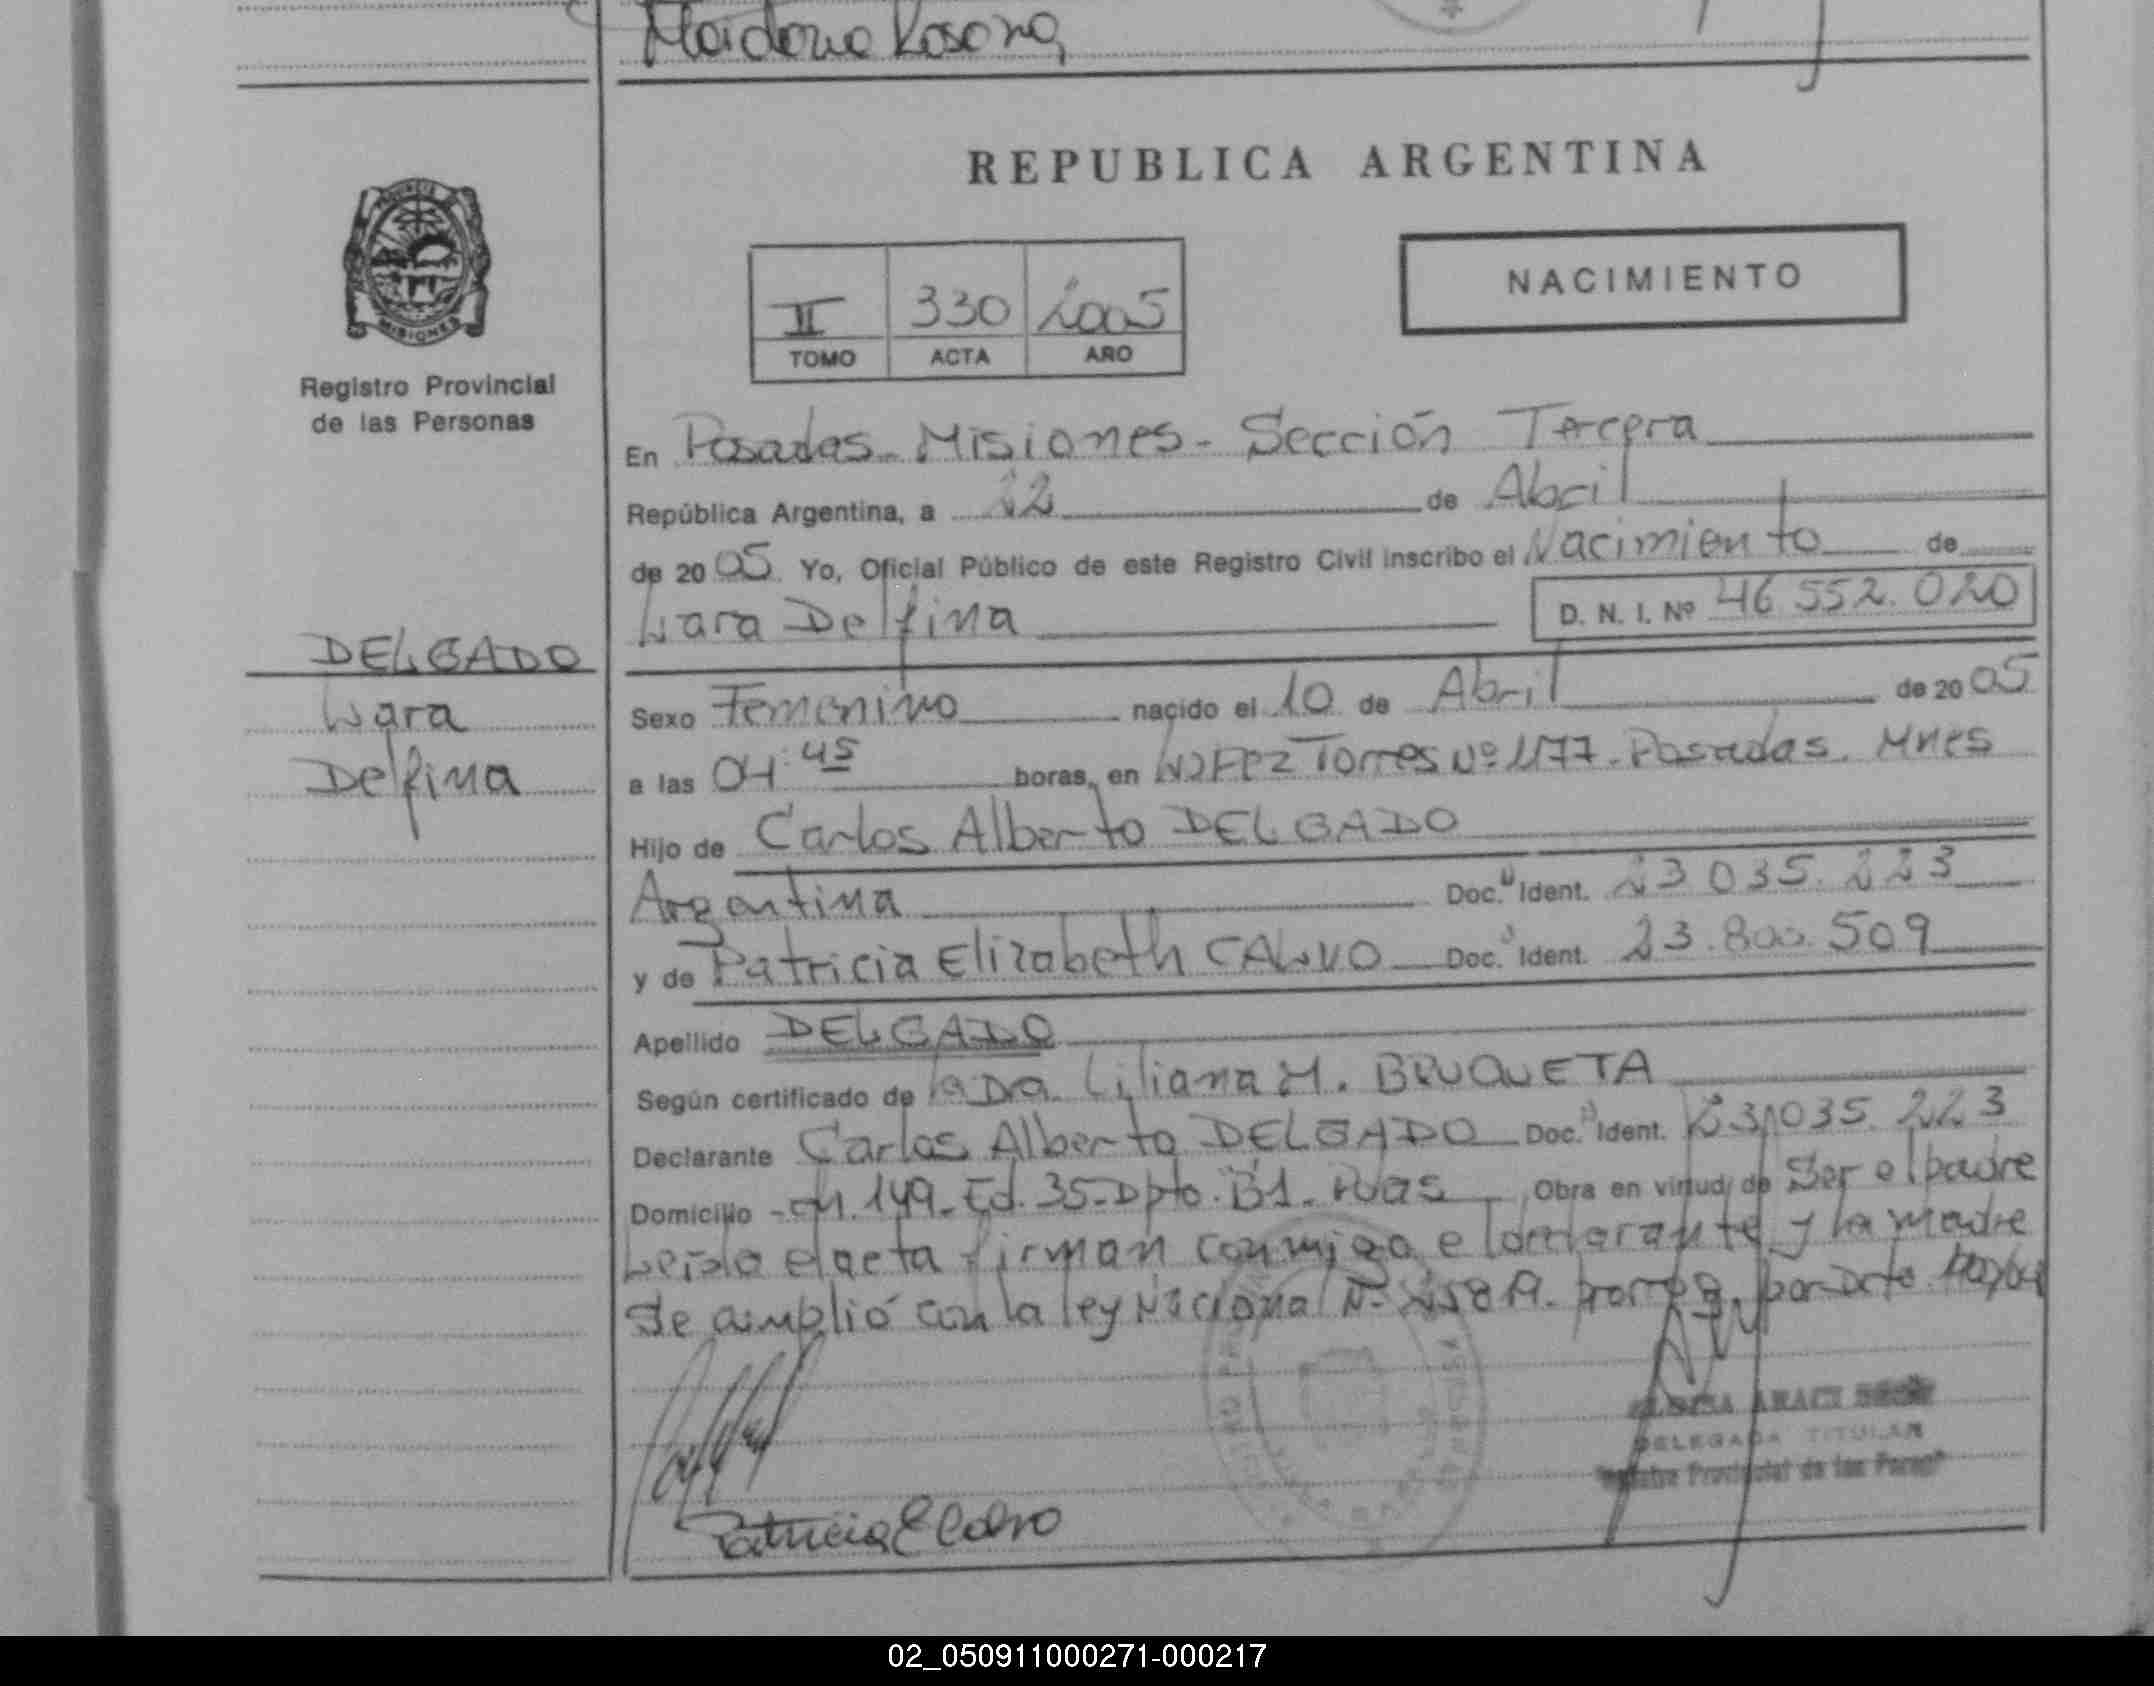 REPUBLICA ARGENTINA
PROVINCIA
MISIONES
Registro Provincial
de las Personas
II 330 2005
TOMO ACTA AÑO
NACIMIENTO
En Posadas - Misiones - Sección Tercera
República Argentina, a 22 de Abril
de 2005 Yo, Oficial Público de este Registro Civil inscribo el Nacimiento de
Lara Delfina D. N. I. Nº 46.552.020
DELGADO
Lara
Delfina
Sexo Femenino nacido el 10 de Abril de 2005
a las 04:45 horas, en López Torres Nº 1177 - Posadas. Mnes
Hijo de Carlos Alberto DELGADO
Argentina Doc. Ident. 23.035.223
y de Patricia Elizabeth CALVO Doc. Ident. 23.800.509
Apellido DELGADO
Según certificado de la Dra. Liliana M. BRUQUETA
Declarante Carlos Alberto DELGADO Doc. Ident. 23.035.223
Domicilio - Ch. 149 - Ed. 35 - Dpto. B1 - Pdas Obra en virtud de Ser el padre
Leída el acta firman conmigo el declarante y la madre
Se amplió con la ley Nacional Nº por Dcto
DELEGADA TITULAR
Registro Provincial de las
Patricia E Calvo
02_050911000271-000217